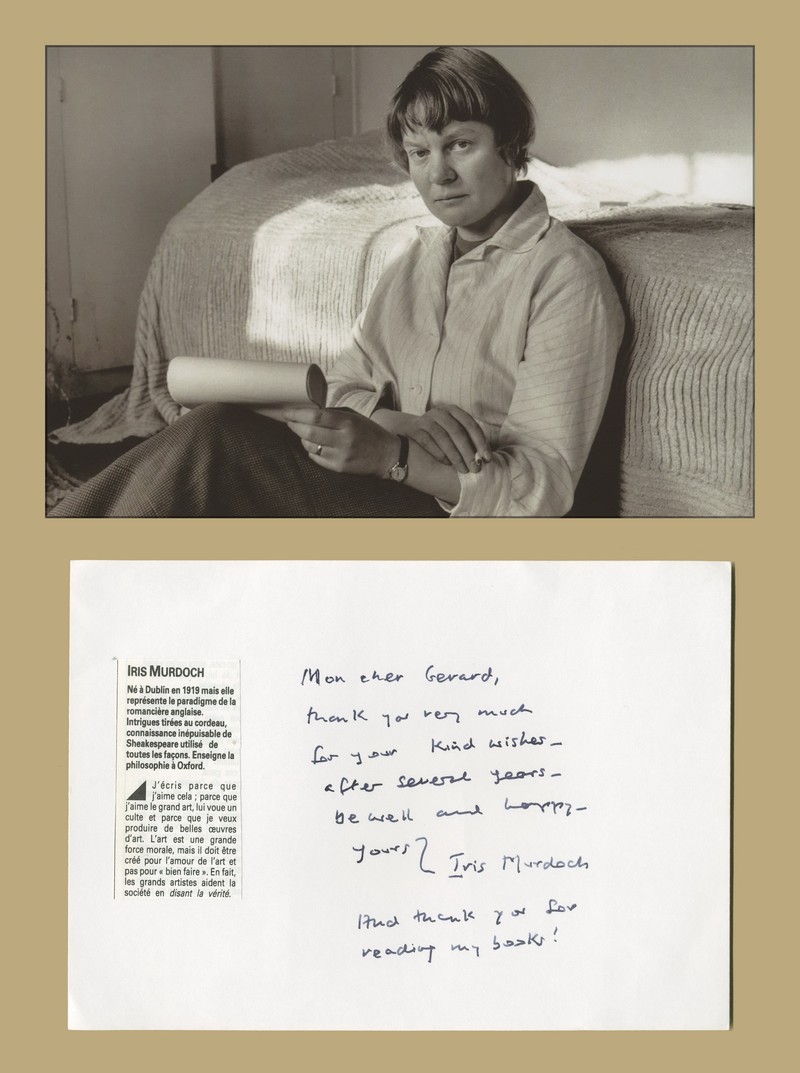 IRIS MURDOCH
Né à Dublin en 1919 mais elle
représente le paradigme de la
romancière anglaise.
Intrigues tirées au cordeau,
connaissance inépuisable de
Sheakespeare utilisé de
toutes les façons. Enseigne la
philosophie à Oxford.
J'écris parce que
j'aime cela ; parce que
j'aime le grand art, lui voue un
culte et parce que je veux
produire de belles œuvres
d'art. L'art est une grande
force morale, mais il doit être
créé pour l'amour de l'art et
pas pour « bien faire ». En fait,
les grands artistes aident la
société en disant la vérité.
Mon cher Gerard,
thank you very much
for your kind wishes—
after several years—
be well and happy—
yours
Iris Murdoch
And thank you for
reading my books!